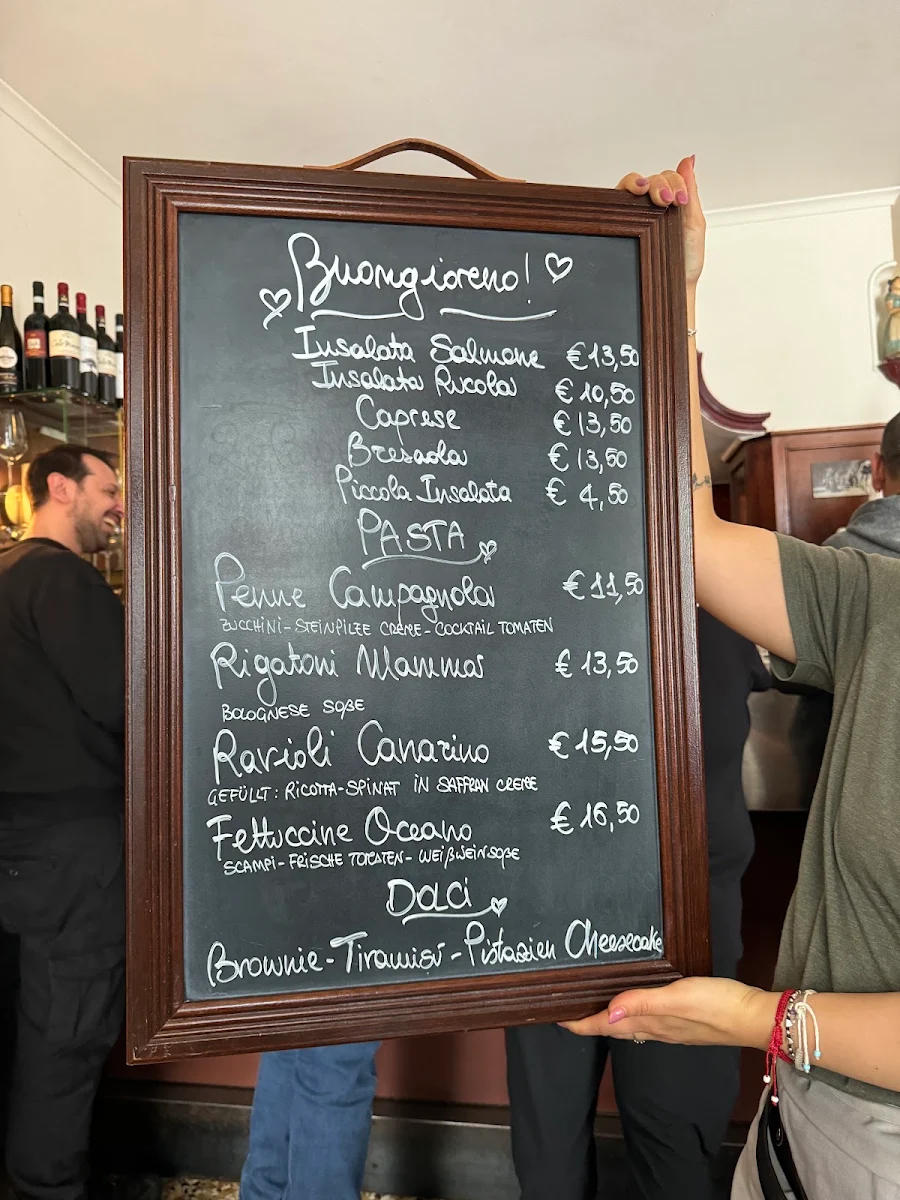 Buongioreno!
Insalata Salmone €13,50
Insalata Rucola €10,50
Caprese €13,50
Bresaola €13,50
Piccola Insalata €4,50
PASTA
Penne Campagnola €11,50
ZUCCHINI-STEINPILZE CREME-COCKTAIL TOMATEN
Rigatoni Mamma €13,50
BOLOGNESE SOßE
Ravioli Canarino €15,50
GEFÜLLT: RICOTTA-SPINAT IN SAFFRAN CREME
Fettuccine Oceano €16,50
SCAMPI-FRISCHE TOMATEN-WEIßWEINSOßE
Dolci
Brownie-Tiramisí-Pistazien Cheesecake